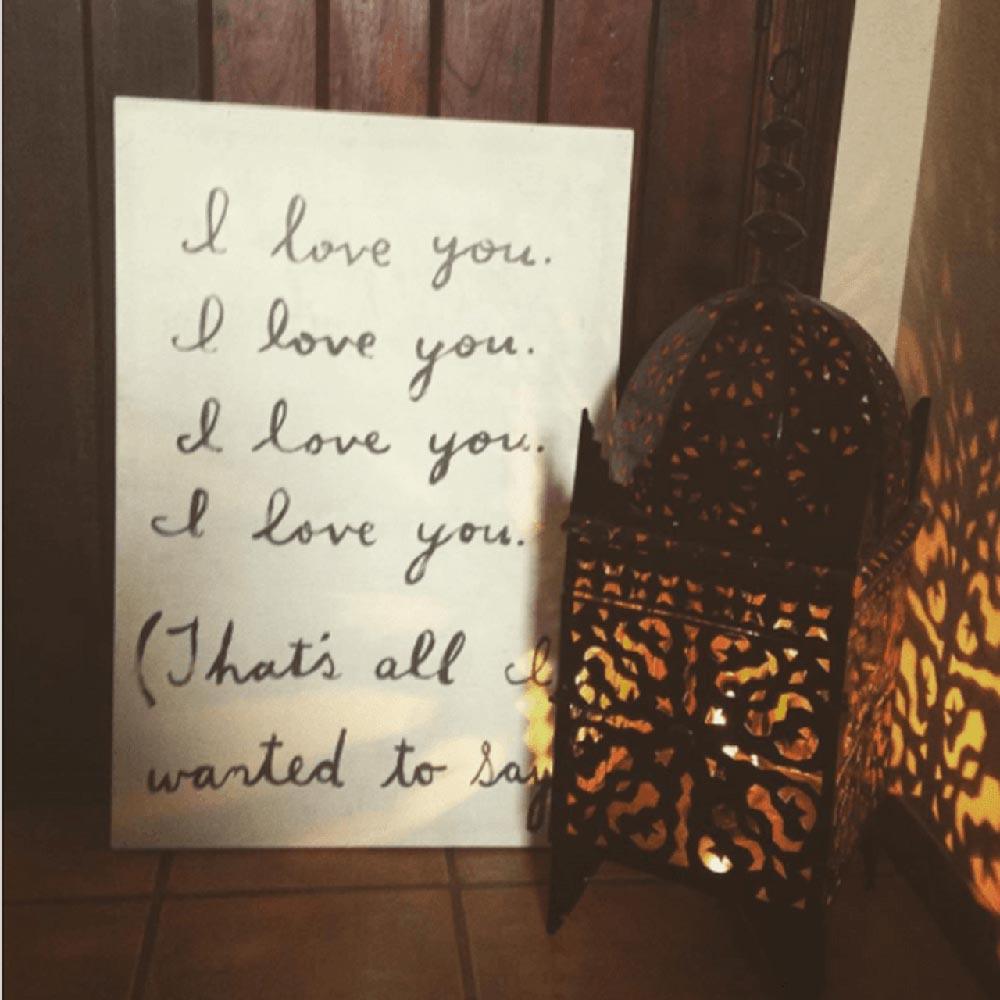 I love you.
I love you.
I love you.
I love you.
(That's all I
wanted to say